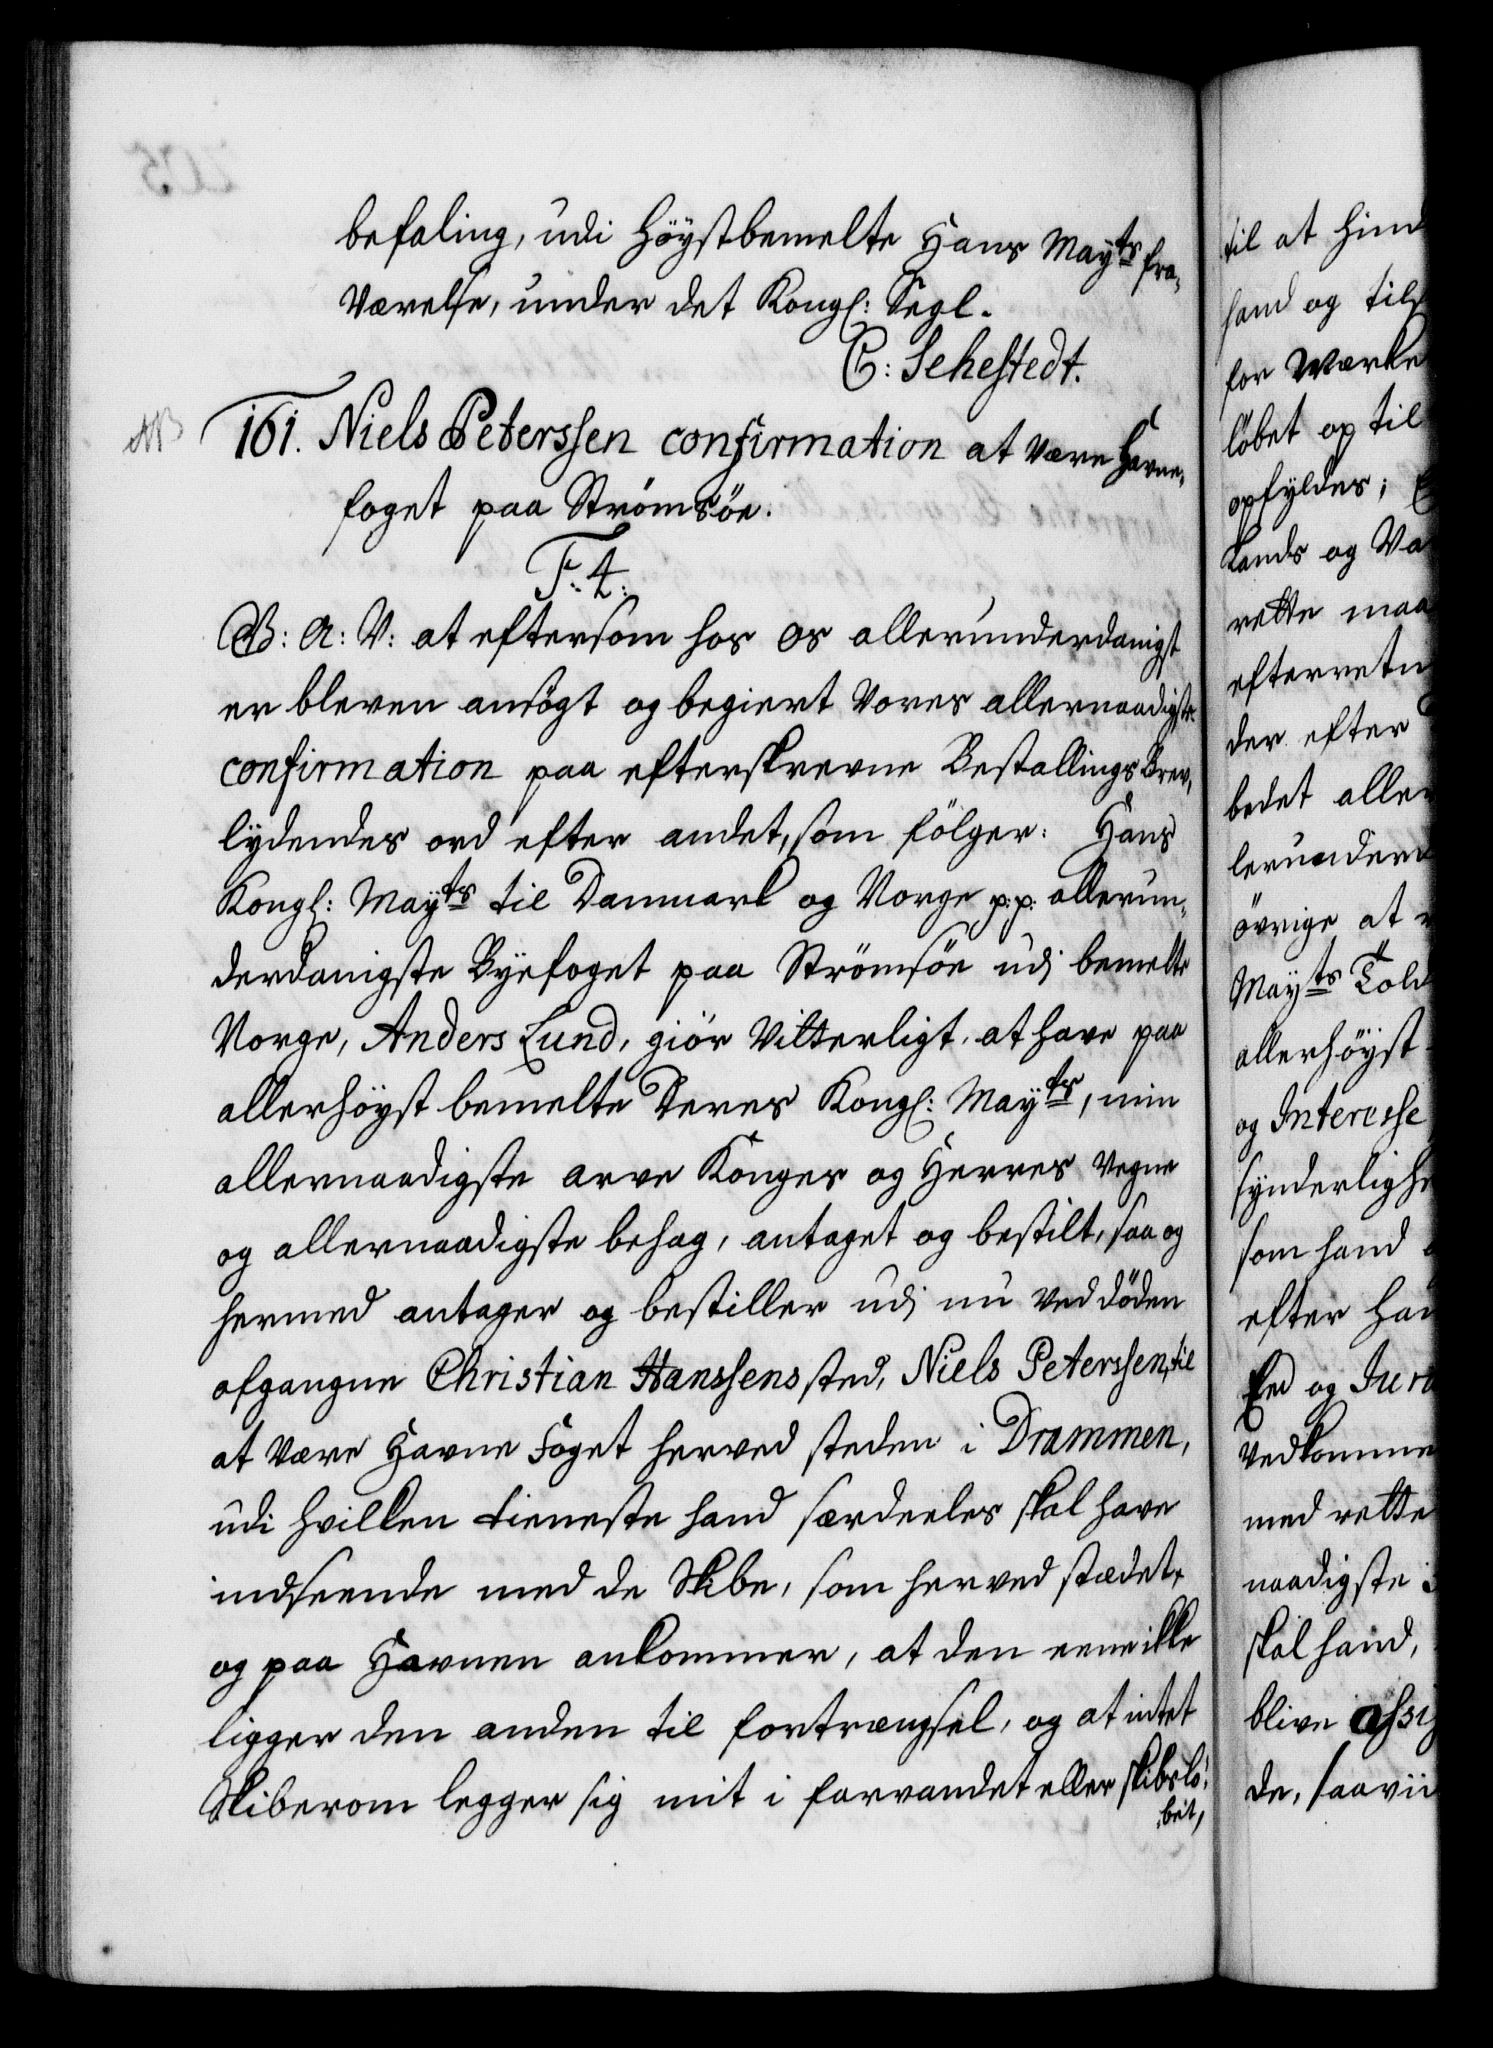 befaling, udi Höystbemelte Hans Mayts fra-
Værelse, under det Kongl: Segl.
C: Sehestedt.
NB
161. Niels Peterssen confirmation at være Havne-
foget paa Strömsöe.
F: 4.
G: A: V: at eftersom hos os allerunderdanigst
er bleven ansögt og begiert Vores allernaadigste
confirmation paa efterskrevne Bestallings Brev,
lydendes ord efter andet, som fölger: Hans
Kongl: Mayts til Danmark og Norge p:p: allerun-
derdanigste Byefoget paa Strömsöe udj bemelte
Norge, Anders Lund, giör Vitterligt, at have paa
allerhöyst bemelte Deres Kongl: Mayts, min
allernaadigste arve Konges og Herres Vegne
og allernaadigste behag, antaget og bestilt, saa og
hermed antager og bestiller udj nu ved döden
afgangne Christian Hanssens sted, Niels Peterssen, til
at være Havne Foget herved steden i Drammen,
udi hvilken tieneste hand særdeeles skal have
indseende med de Skibe, som herved stædet,
og paa Havnen ankommer, at den eene ikke
ligger den anden til fortrængsel, og at intet
Skiberom legger sig mit i farvandet eller skibslö-
bet,
til at hind
hand og tils
for Værke
löbet op til
opfyldes;
Lands og Va
rette maa
efterretn
der efter
bedet aller
lerunderd
övrige at
Mayts Told
allerhöyst
og Interesse
synderlighe
som hand
efter han
Eed og Jura
Vedkomme
med rette
naadigste
skal hand,
blive assi
de, saavii